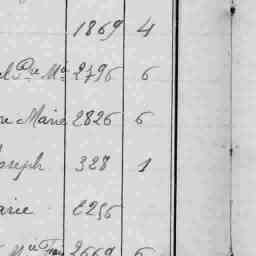 1869 4
el Pre Ma 2796 6
re Marie 2826 6
oseph 328 1
arie 2256
Mie Fran 2669 6